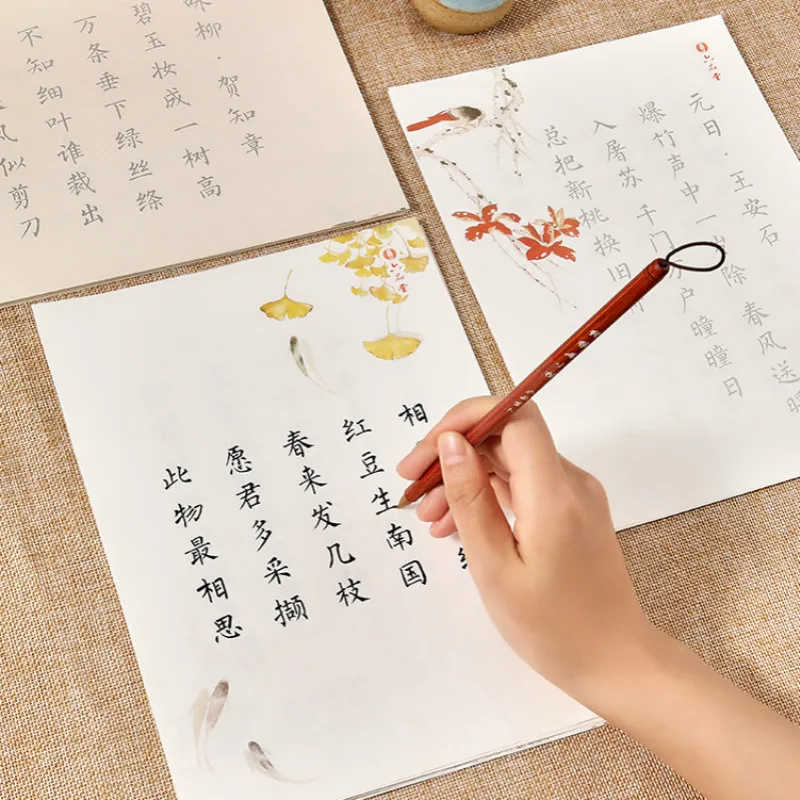 咏柳·贺知章
碧玉妆成一树高
万条垂下绿丝绦
不知细叶谁裁出
风似剪刀
六品堂
元日·王安石
爆竹声中一岁除 春风送暖
入屠苏 千门万户曈曈日
总把新桃换旧
六品堂
相
红豆生南国
春来发几枝
愿君多采撷
此物最相思